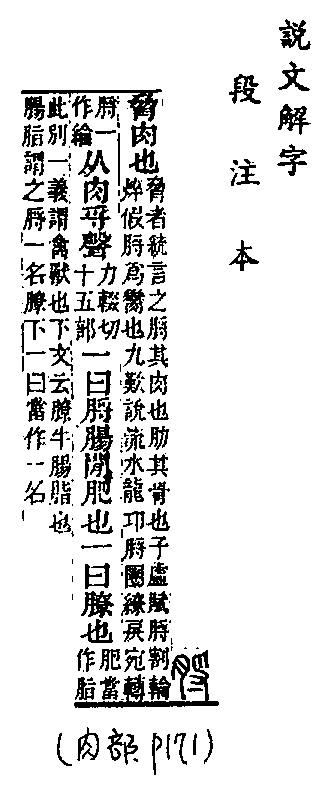 説文解字
段注本
脅肉也
脅者統言之脟其肉也肋其骨也子虛賦脟割輪
焠假脟爲臠也九歎說流水龍卭脟圈繚戾宛轉
脟一
作綸
从肉寽聲
力輟切
十五部
一曰脟腸閒肥也一曰膫也
肥當
作脂
此別一義謂禽獸也下文云膫牛腸脂也
腸脂謂之脟一名膫下一曰當作一名
(肉部 P171)